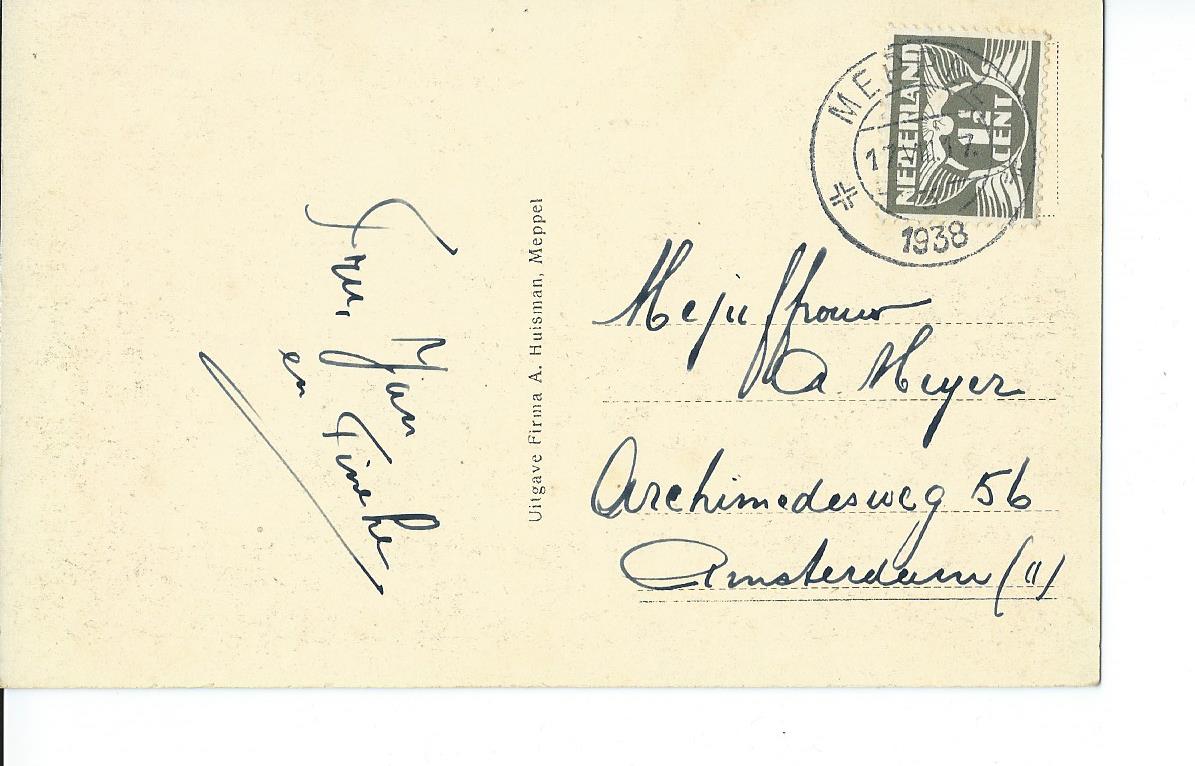 Jan
en Tineke
Uitgave Firma A. Huisman, Meppel
NEDERLAND
1½
CENT
1938
Mejuffrouw
A. Meyer
Archimedesweg 56
Amsterdam (O)